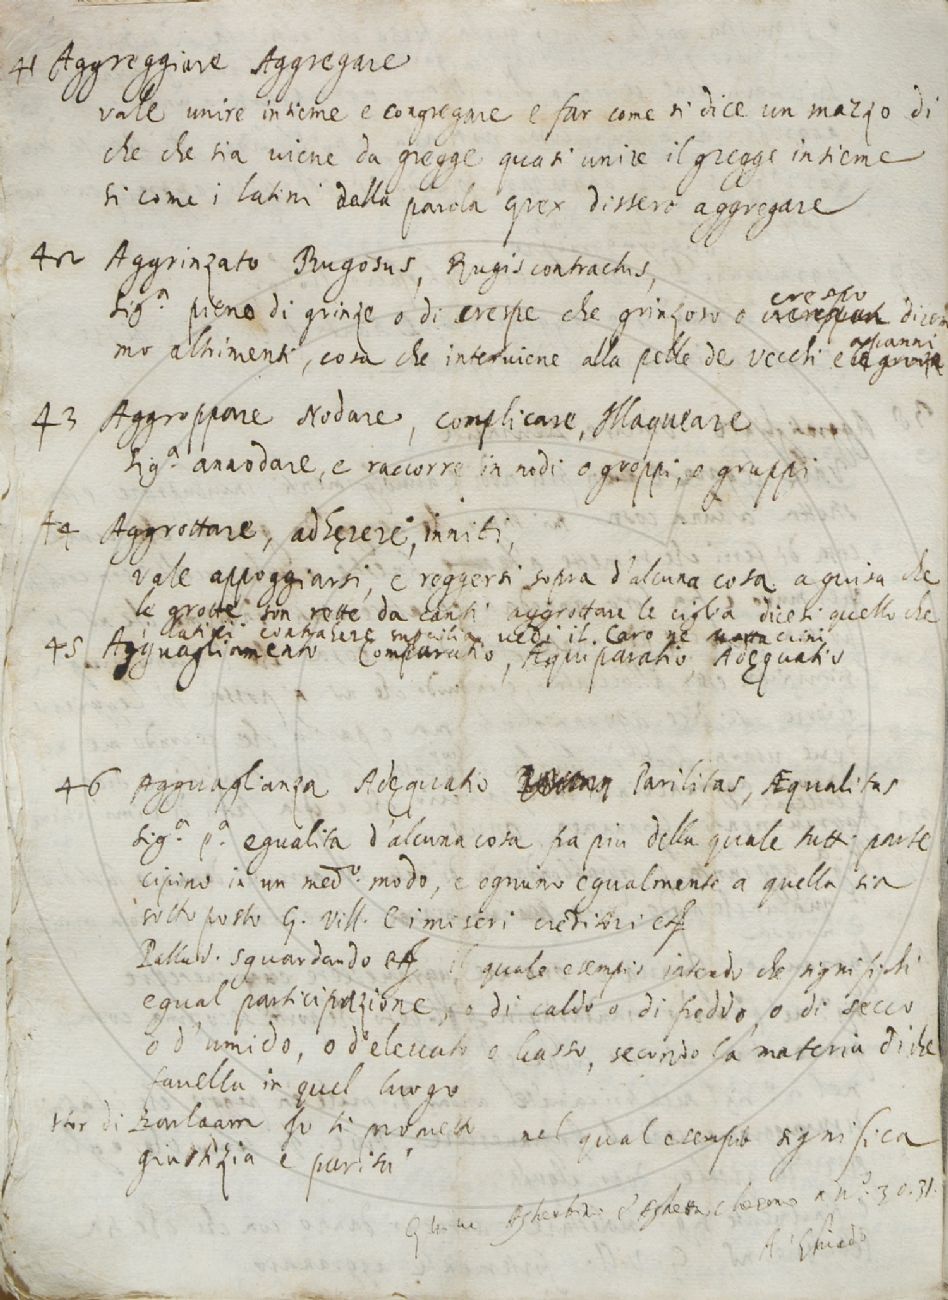 41 Aggreggiare Aggregare
vale unire insieme e congregare e far come si dice un mazzo di
che che sia viene da gregge quasi unire il gregge insieme
si come i latini dalla parola grex dissero aggregare
42 Aggrinzato Rugosus, Rugis contractus,
sigª pieno di grinze o di crespe che grinzoso o crespo dicia
mo altrimenti, cosa che interviene alla pelle de vecchi e a panni
43 Aggroppare Nodare, complicare, Illaqueare
sigª annodare, e raccorre in nodi o groppi, o gruppi
44 Aggrottare, adhęrere, inniti,
vale appoggiarsi, e reggersi sopra d'alcuna cosa a guisa che
le grotte son rette da canti aggrottare le ciglia dicesi quello che
i latini contrahere supercilia vedi il Caro ne mattacini
45 Agguagliamento Comparatio, Aequiparatio, Adęquatio
46 Agguaglianza Adequatio Parilitas, Æqualitas
sigª pª egualita d'alcuna cosa fra piu della quale tutti parte
cipino in un medº modo, e ognuno egualmente a quella sia
sottoposto G. Vill. E i miseri creditori
Pallad. sguardando il quale esempio intendo che significhi
egual participazione, o di caldo o di freddo, o di secco
o d'umido, o d'elevato o basso, secondo la materia di che
favella in quel luogo
Stor di Barlaam Io ti prometto nel qual esempio significa
giustizia e parità
a nº 30.31.